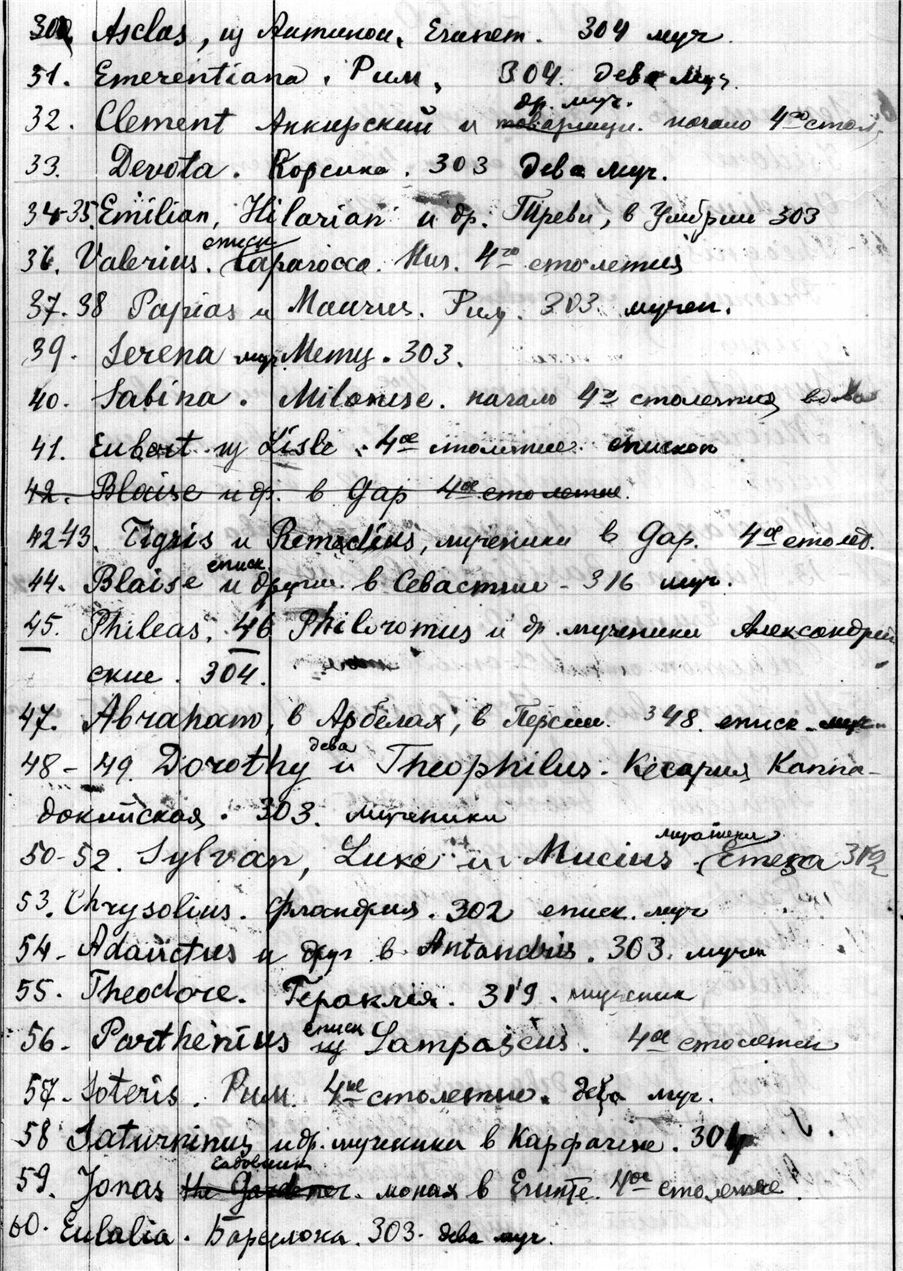 30. Asclas, из Антинои, Египет. 304 муч.
31. Emerentiana. Рим, 304. дева муч.
др. муч.
32. Clement Анкирский и товарищи. начало 4го стол.
33. Devota. Корсика. 303 дева муч.
34-35 Emilian, Hilarian и др. Треви, в Умбрии 303
еписк
36. Valerius. Сарагосса. Исп. 4го столетия
37. 38 Papias и Maurus. Рим. 303. мучен.
39. Serena муч. Мемц. 303.
40. Sabina. начало 4го столетия, вдова
41. Eubert из Lisle. 4ое столетие. епископ
42. Blaise и др. в Gap 4ое столетие.
42 43. Tigris и Remedius, мученики в Gap. 4ое столет.
еписк
44. Blaise и другие в Севастии - 316 муч.
45. Phileas. 46 Philoromus и др. мученики Александрий
ские. 304.
47. Abraham, в Арбелах, в Персии. 348. еписк. муч.
дева
48 - 49. Dorothy и Theophilus. Кесария Каппа-
докийская. 303. мученики
мученики
50-52. Sylvan, Luke и Mucius. Емеза 312
53. Chrysolius. Фландрия. 302 еписк. муч
54. Adauctus и друг в Antandrus. 303. мучен
55. Theodore. Гераклея. 319. мученик
еписк
56. Parthenius из Lampascus. 4ое столетие
57. Soteris. Рим. 4ое столетие. дева муч.
58 Saturninus и др. мученики в Карфагене. 304
садовник
59. Jonas the Gardener. монах в Египте. 4ое столетие.
60. Eulalia. Барселона. 303. дева муч.